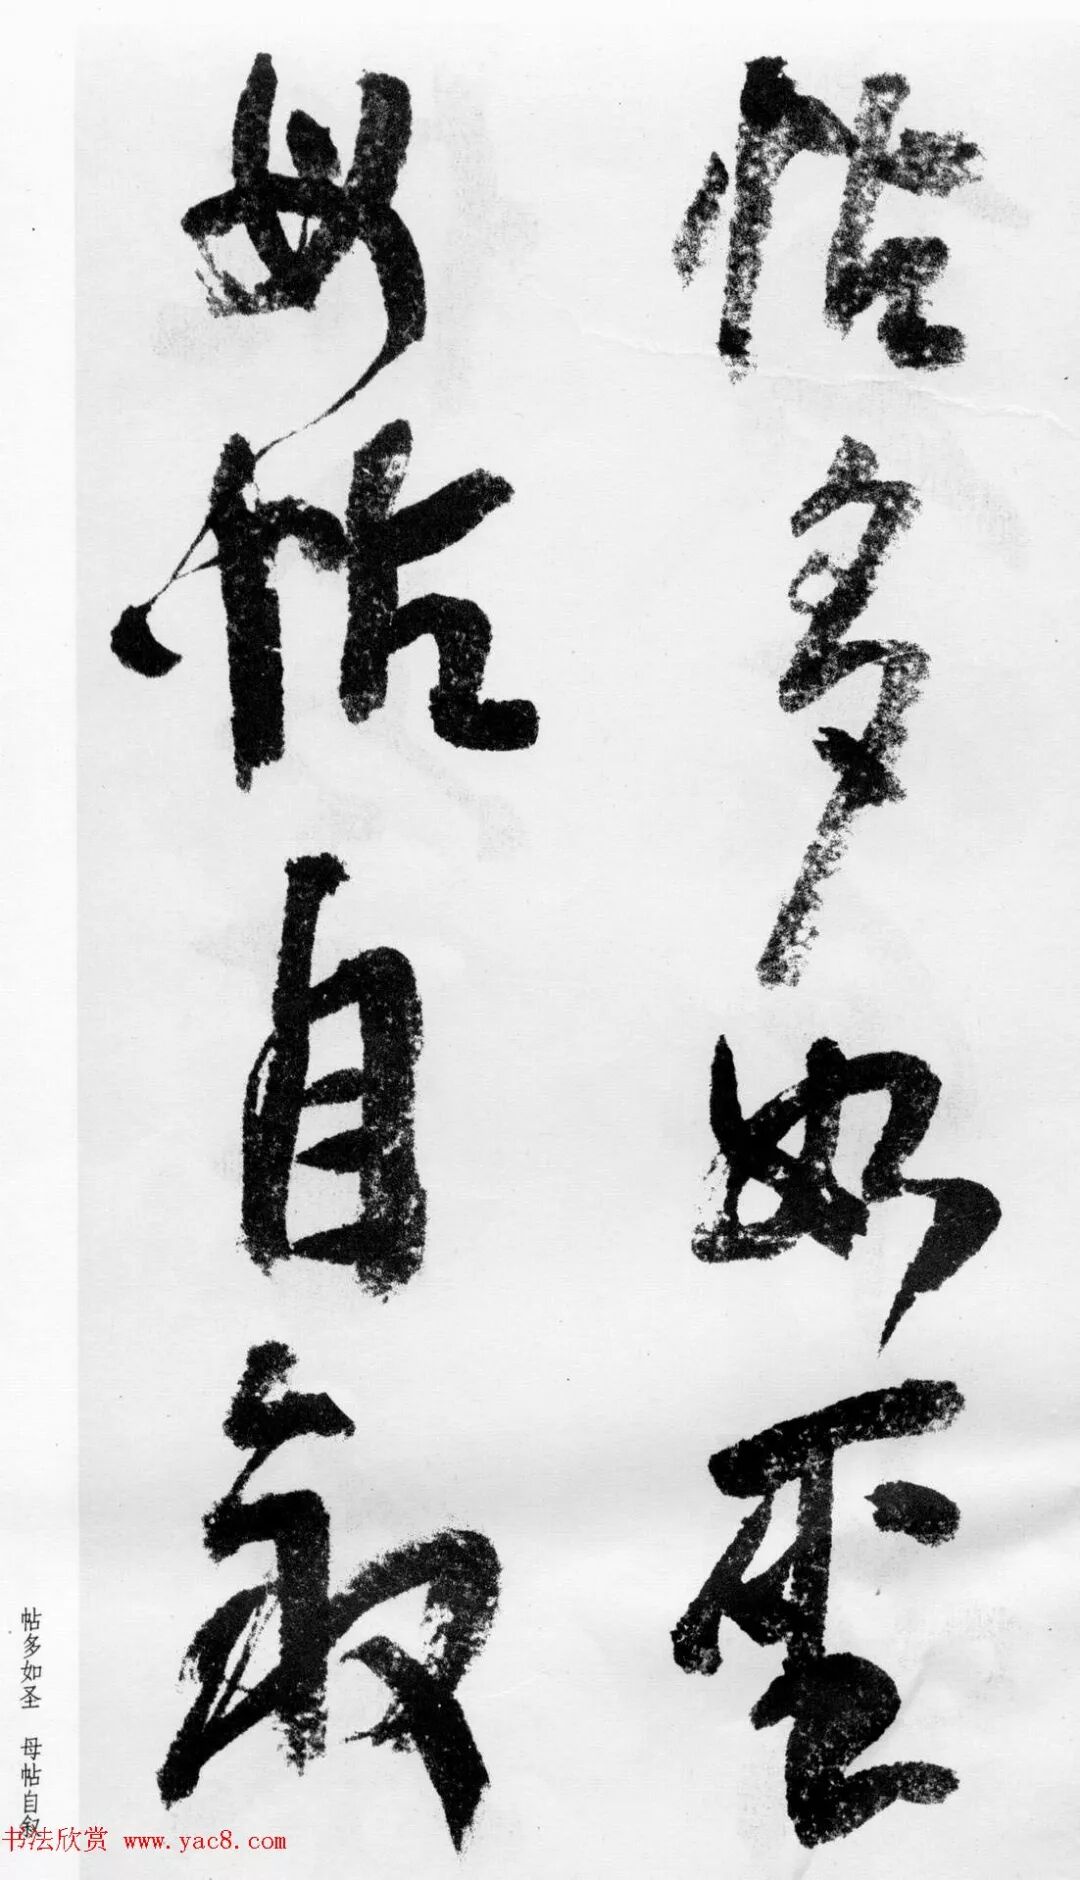 帖多如圣
母帖自叙
帖多如圣 母帖自叙
书法欣赏 www.yac8.com